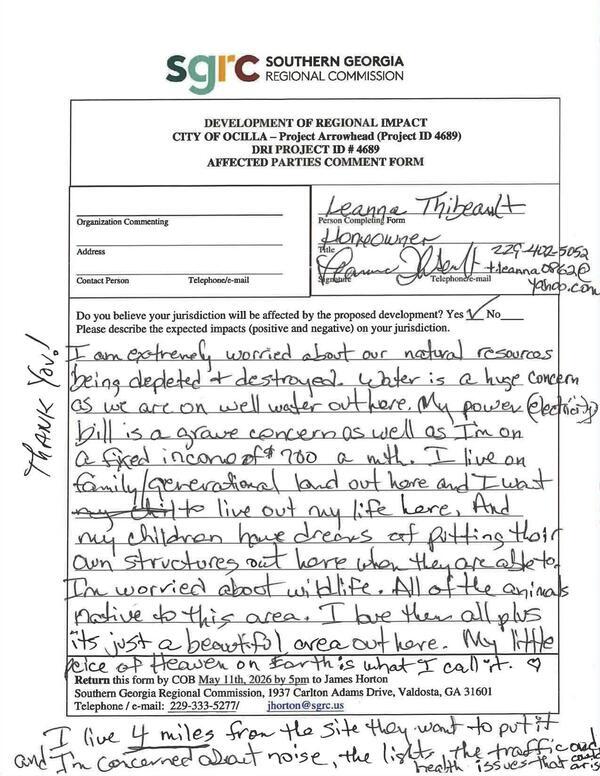 sgrc SOUTHERN GEORGIA
REGIONAL COMMISSION
DEVELOPMENT OF REGIONAL IMPACT
CITY OF OCILLA – Project Arrowhead (Project ID 4689)
DRI PROJECT ID # 4689
AFFECTED PARTIES COMMENT FORM
Organization Commenting
Address
Contact Person Telephone/e-mail
Leanna Thibeault
Person Completing Form
Homeowner
Title
Leanna Thibeault 229-402-5052
tleanna0862@
yahoo.com
Signature Telephone/e-mail
Do you believe your jurisdiction will be affected by the proposed development? Yes ✓ No
Please describe the expected impacts (positive and negative) on your jurisdiction.
THANK YOU!
I am extremely worried about our natural resources
being depleted + destroyed. Water is a huge concern
as we are on well water out here. My power (electricity)
bill is a grave concern as well as I'm on
a fixed income of $700 a mth. I live on
family/generational land out here and I want
to live out my life here, And
my children have dreams of putting their
own structures out here when they are able to.
I'm worried about wildlife. All of the animals
native to this area. I love them all plus
its just a beautiful area out here. My little
peice of Heaven on Earth is what I call it. ♡
Return this form by COB May 11th, 2026 by 5pm to James Horton
Southern Georgia Regional Commission, 1937 Carlton Adams Drive, Valdosta, GA 31601
Telephone / e-mail: 229-333-5277/ jhorton@sgrc.us
I live 4 miles from the site they want to put it
and I'm concerned about noise, the lights, the traffic and
health issues that could